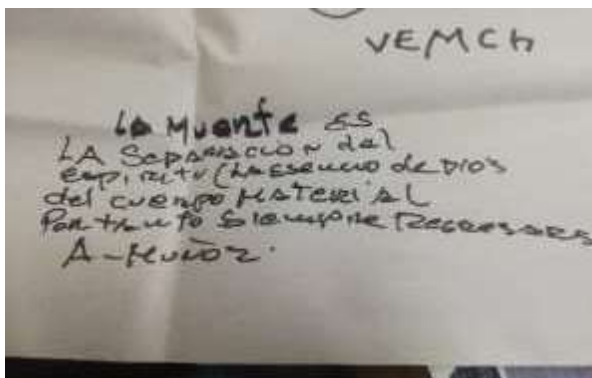 VEMCh
La Muente es
LA Separacion del
espiritu (La Esencio de Dios
del cuerpo MATERIAL
Por tanto Siempre Regresara
A-Muñoz.